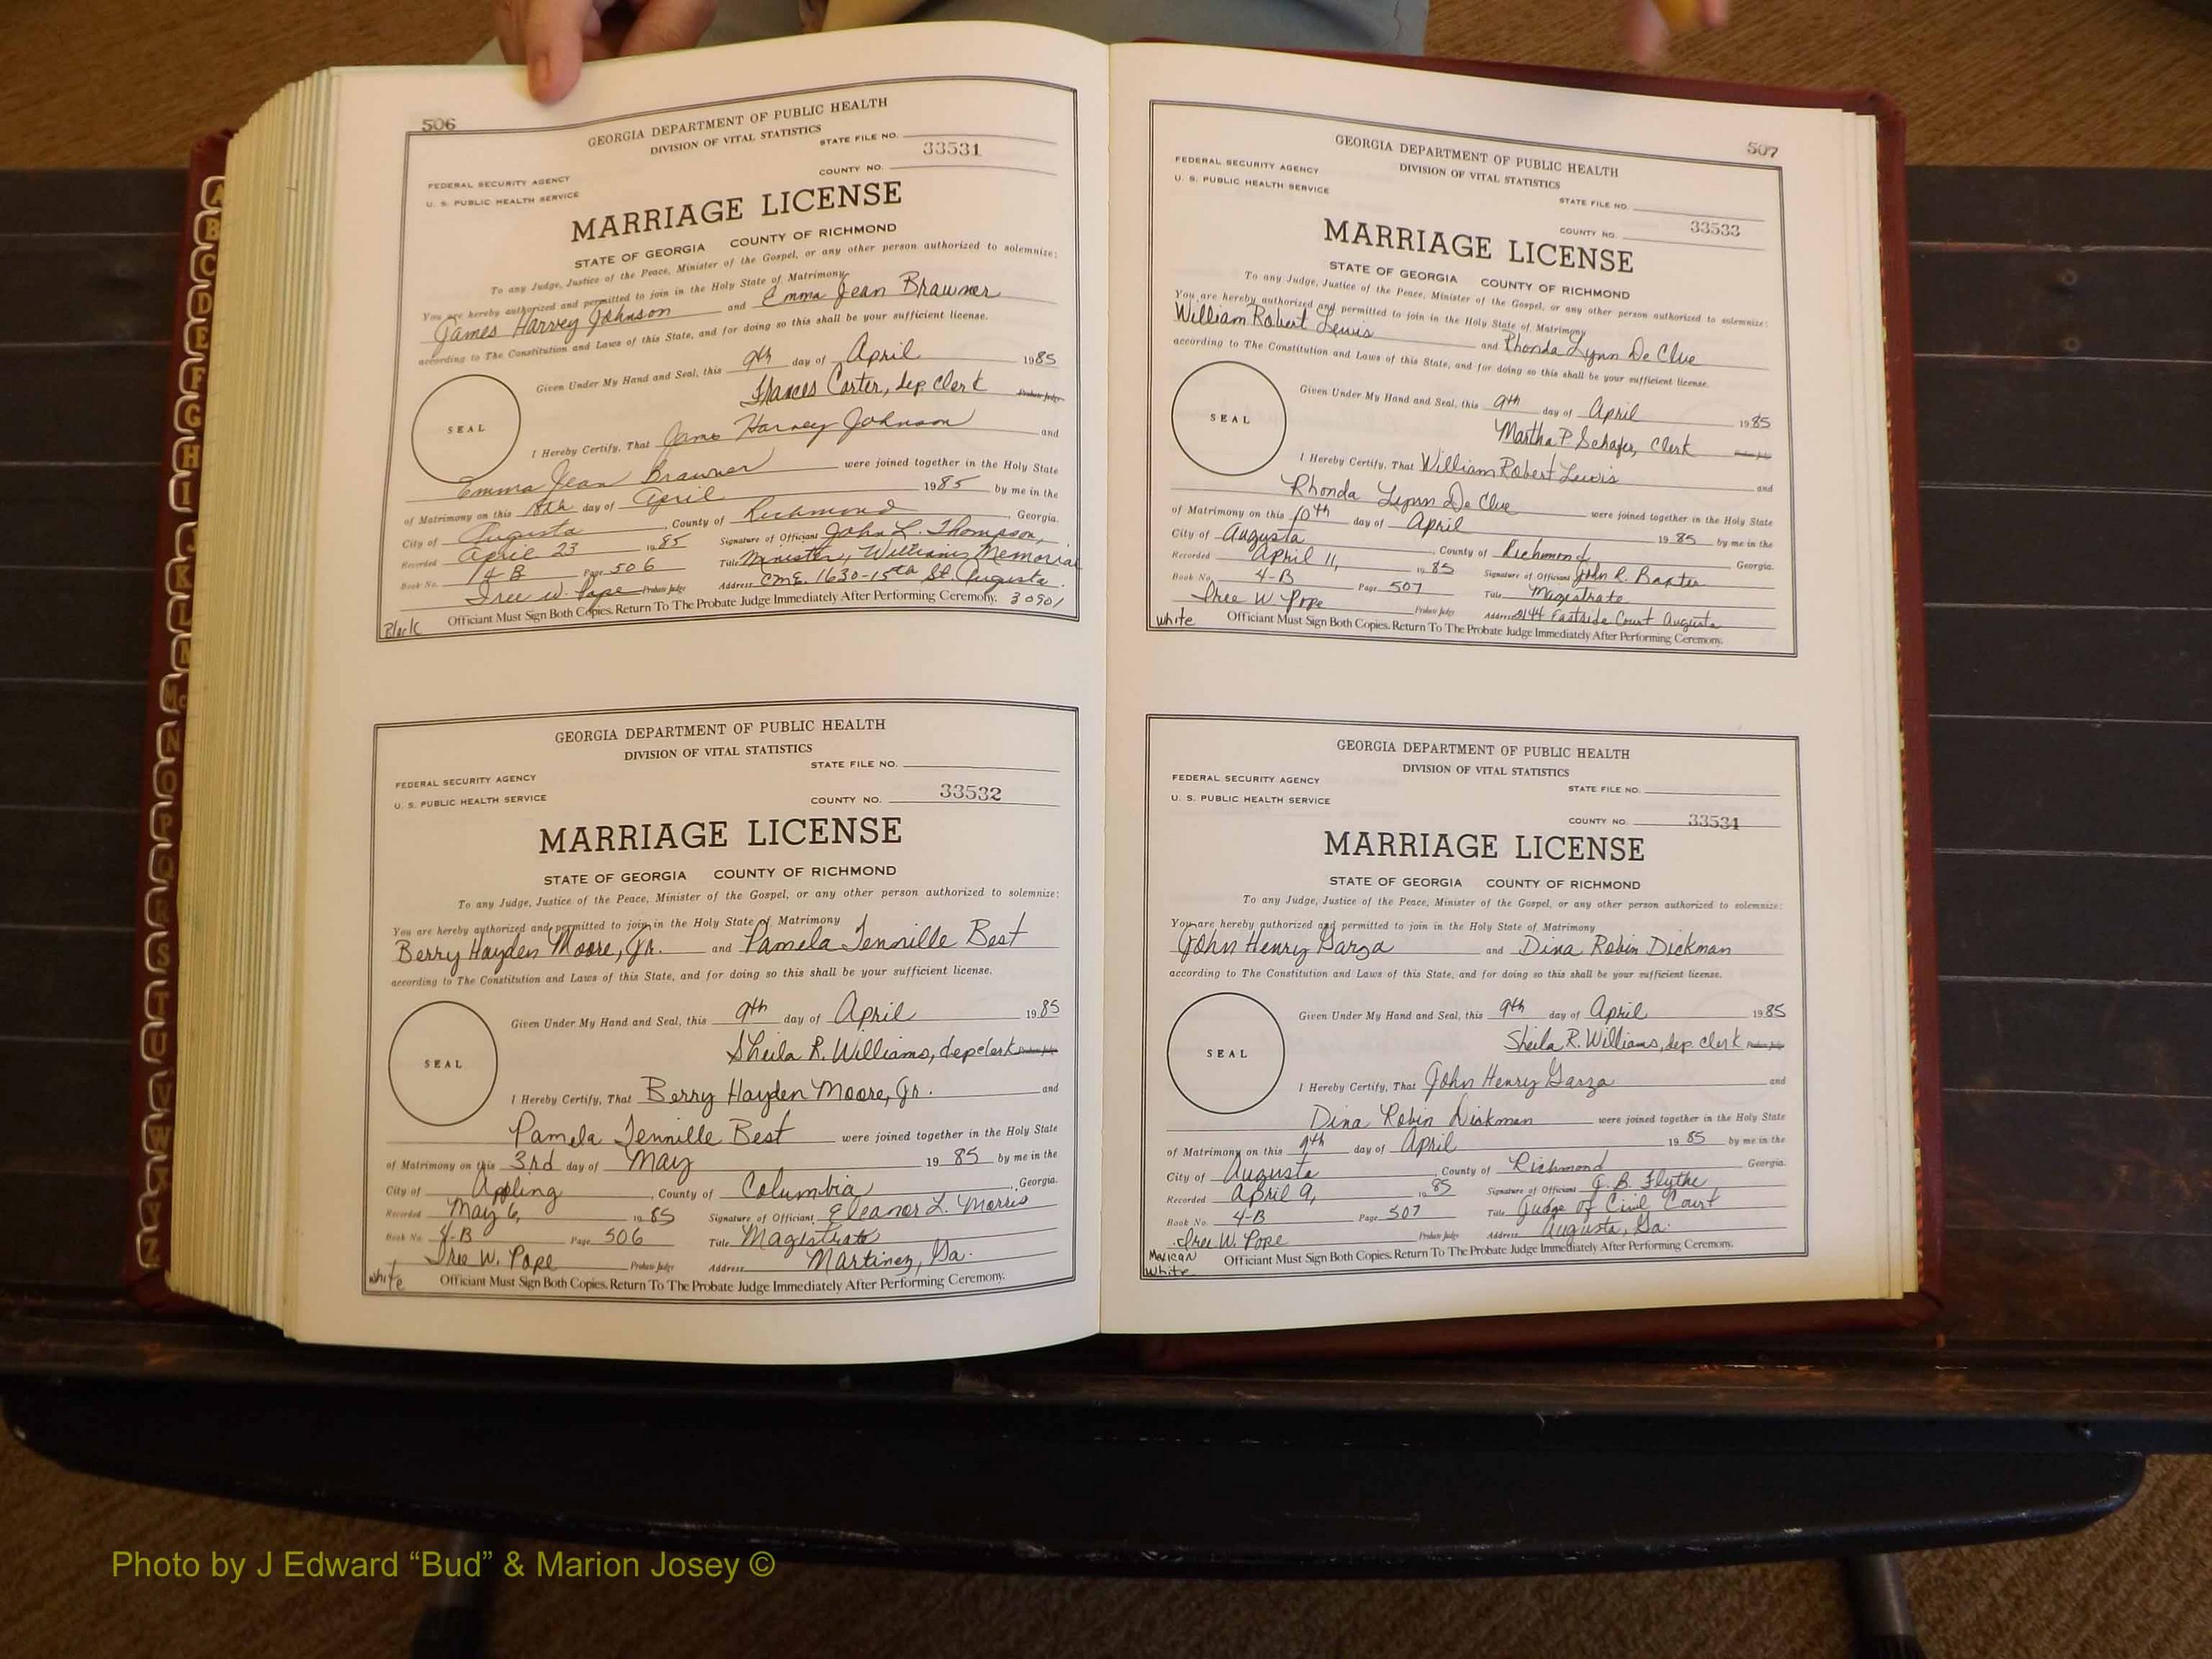 506
GEORGIA DEPARTMENT OF PUBLIC HEALTH
DIVISION OF VITAL STATISTICS
STATE FILE NO.
33531
COUNTY NO.
FEDERAL SECURITY AGENCY
U. S. PUBLIC HEALTH SERVICE
MARRIAGE LICENSE
STATE OF GEORGIA COUNTY OF RICHMOND
To any Judge, Justice of the Peace, Minister of the Gospel, or any other person authorized to solemnize:
You are hereby authorized and permitted to join in the Holy State of Matrimony
James Harvey Johnson and Emma Jean Brawner
according to The Constitution and Laws of this State, and for doing so this shall be your sufficient license.
Given Under My Hand and Seal, this 9th day of April 1985
Frances Carter, dep Clerk Probate Judge
SEAL
I Hereby Certify, That James Harvey Johnson and
Emma Jean Brawner were joined together in the Holy State
of Matrimony on this 18th day of April 1985 by me in the
City of Augusta, County of Richmond, Georgia.
Recorded April 23 1985 Signature of Officiant John L. Thompson,
Book No. 4-B Page 506 Title Minister, Williams Memorial
Iree W. Pope Probate Judge Address CME. 1630-15th St. Augusta. 30901
Officiant Must Sign Both Copies. Return To The Probate Judge Immediately After Performing Ceremony.
Black
GEORGIA DEPARTMENT OF PUBLIC HEALTH
DIVISION OF VITAL STATISTICS
STATE FILE NO.
FEDERAL SECURITY AGENCY
U. S. PUBLIC HEALTH SERVICE
COUNTY NO. 33532
MARRIAGE LICENSE
STATE OF GEORGIA COUNTY OF RICHMOND
To any Judge, Justice of the Peace, Minister of the Gospel, or any other person authorized to solemnize:
You are hereby authorized and permitted to join in the Holy State of Matrimony
Berry Hayden Moore, Jr. and Pamela Tennille Best
according to The Constitution and Laws of this State, and for doing so this shall be your sufficient license.
Given Under My Hand and Seal, this 9th day of April 1985
Sheila R. Williams, dep clerk Probate Judge
SEAL
I Hereby Certify, That Berry Hayden Moore, Jr. and
Pamela Tennille Best were joined together in the Holy State
of Matrimony on this 3rd day of May 1985 by me in the
City of Appling, County of Columbia, Georgia.
Recorded May 6, 1985 Signature of Officiant Eleanor L. Morris
Book No. 4-B Page 506 Title Magistrate
Iree W. Pope Probate Judge Address Martinez, Ga.
White Officiant Must Sign Both Copies. Return To The Probate Judge Immediately After Performing Ceremony.
507
GEORGIA DEPARTMENT OF PUBLIC HEALTH
DIVISION OF VITAL STATISTICS
FEDERAL SECURITY AGENCY
U. S. PUBLIC HEALTH SERVICE
STATE FILE NO.
COUNTY NO. 33533
MARRIAGE LICENSE
STATE OF GEORGIA COUNTY OF RICHMOND
To any Judge, Justice of the Peace, Minister of the Gospel, or any other person authorized to solemnize:
You are hereby authorized and permitted to join in the Holy State of Matrimony
William Robert Lewis and Rhonda Lynn De Clue
according to The Constitution and Laws of this State, and for doing so this shall be your sufficient license.
Given Under My Hand and Seal, this 9th day of April 1985
Martha P. Schafer, Clerk Probate Judge
SEAL
I Hereby Certify, That William Robert Lewis and
Rhonda Lynn De Clue were joined together in the Holy State
of Matrimony on this 10th day of April 1985 by me in the
City of Augusta, County of Richmond Georgia.
Recorded April 11, 1985 Signature of Officiant John R. Baxter
Book No. 4-B Page 507 Title Magistrate
Iree W Pope Probate Judge Address 2144 Eastside Court Augusta
white Officiant Must Sign Both Copies. Return To The Probate Judge Immediately After Performing Ceremony.
GEORGIA DEPARTMENT OF PUBLIC HEALTH
DIVISION OF VITAL STATISTICS
FEDERAL SECURITY AGENCY
U. S. PUBLIC HEALTH SERVICE
STATE FILE NO.
COUNTY NO. 33534
MARRIAGE LICENSE
STATE OF GEORGIA COUNTY OF RICHMOND
To any Judge, Justice of the Peace, Minister of the Gospel, or any other person authorized to solemnize:
You are hereby authorized and permitted to join in the Holy State of Matrimony
John Henry Garza and Dina Robin Dickman
according to The Constitution and Laws of this State, and for doing so this shall be your sufficient license.
Given Under My Hand and Seal, this 9th day of April 1985
Sheila R. Williams, dep clerk Probate Judge
SEAL
I Hereby Certify, That John Henry Garza and
Dina Robin Dickman were joined together in the Holy State
of Matrimony on this 9th day of April 1985 by me in the
City of Augusta, County of Richmond Georgia.
Recorded April 9, 1985 Signature of Officiant G. B. Flythe
Book No. 4-B Page 507 Title Judge of Civil Court
Iree W. Pope Probate Judge Address Augusta, Ga.
Mexican
White
Officiant Must Sign Both Copies. Return To The Probate Judge Immediately After Performing Ceremony.
Photo by J Edward “Bud” & Marion Josey ©